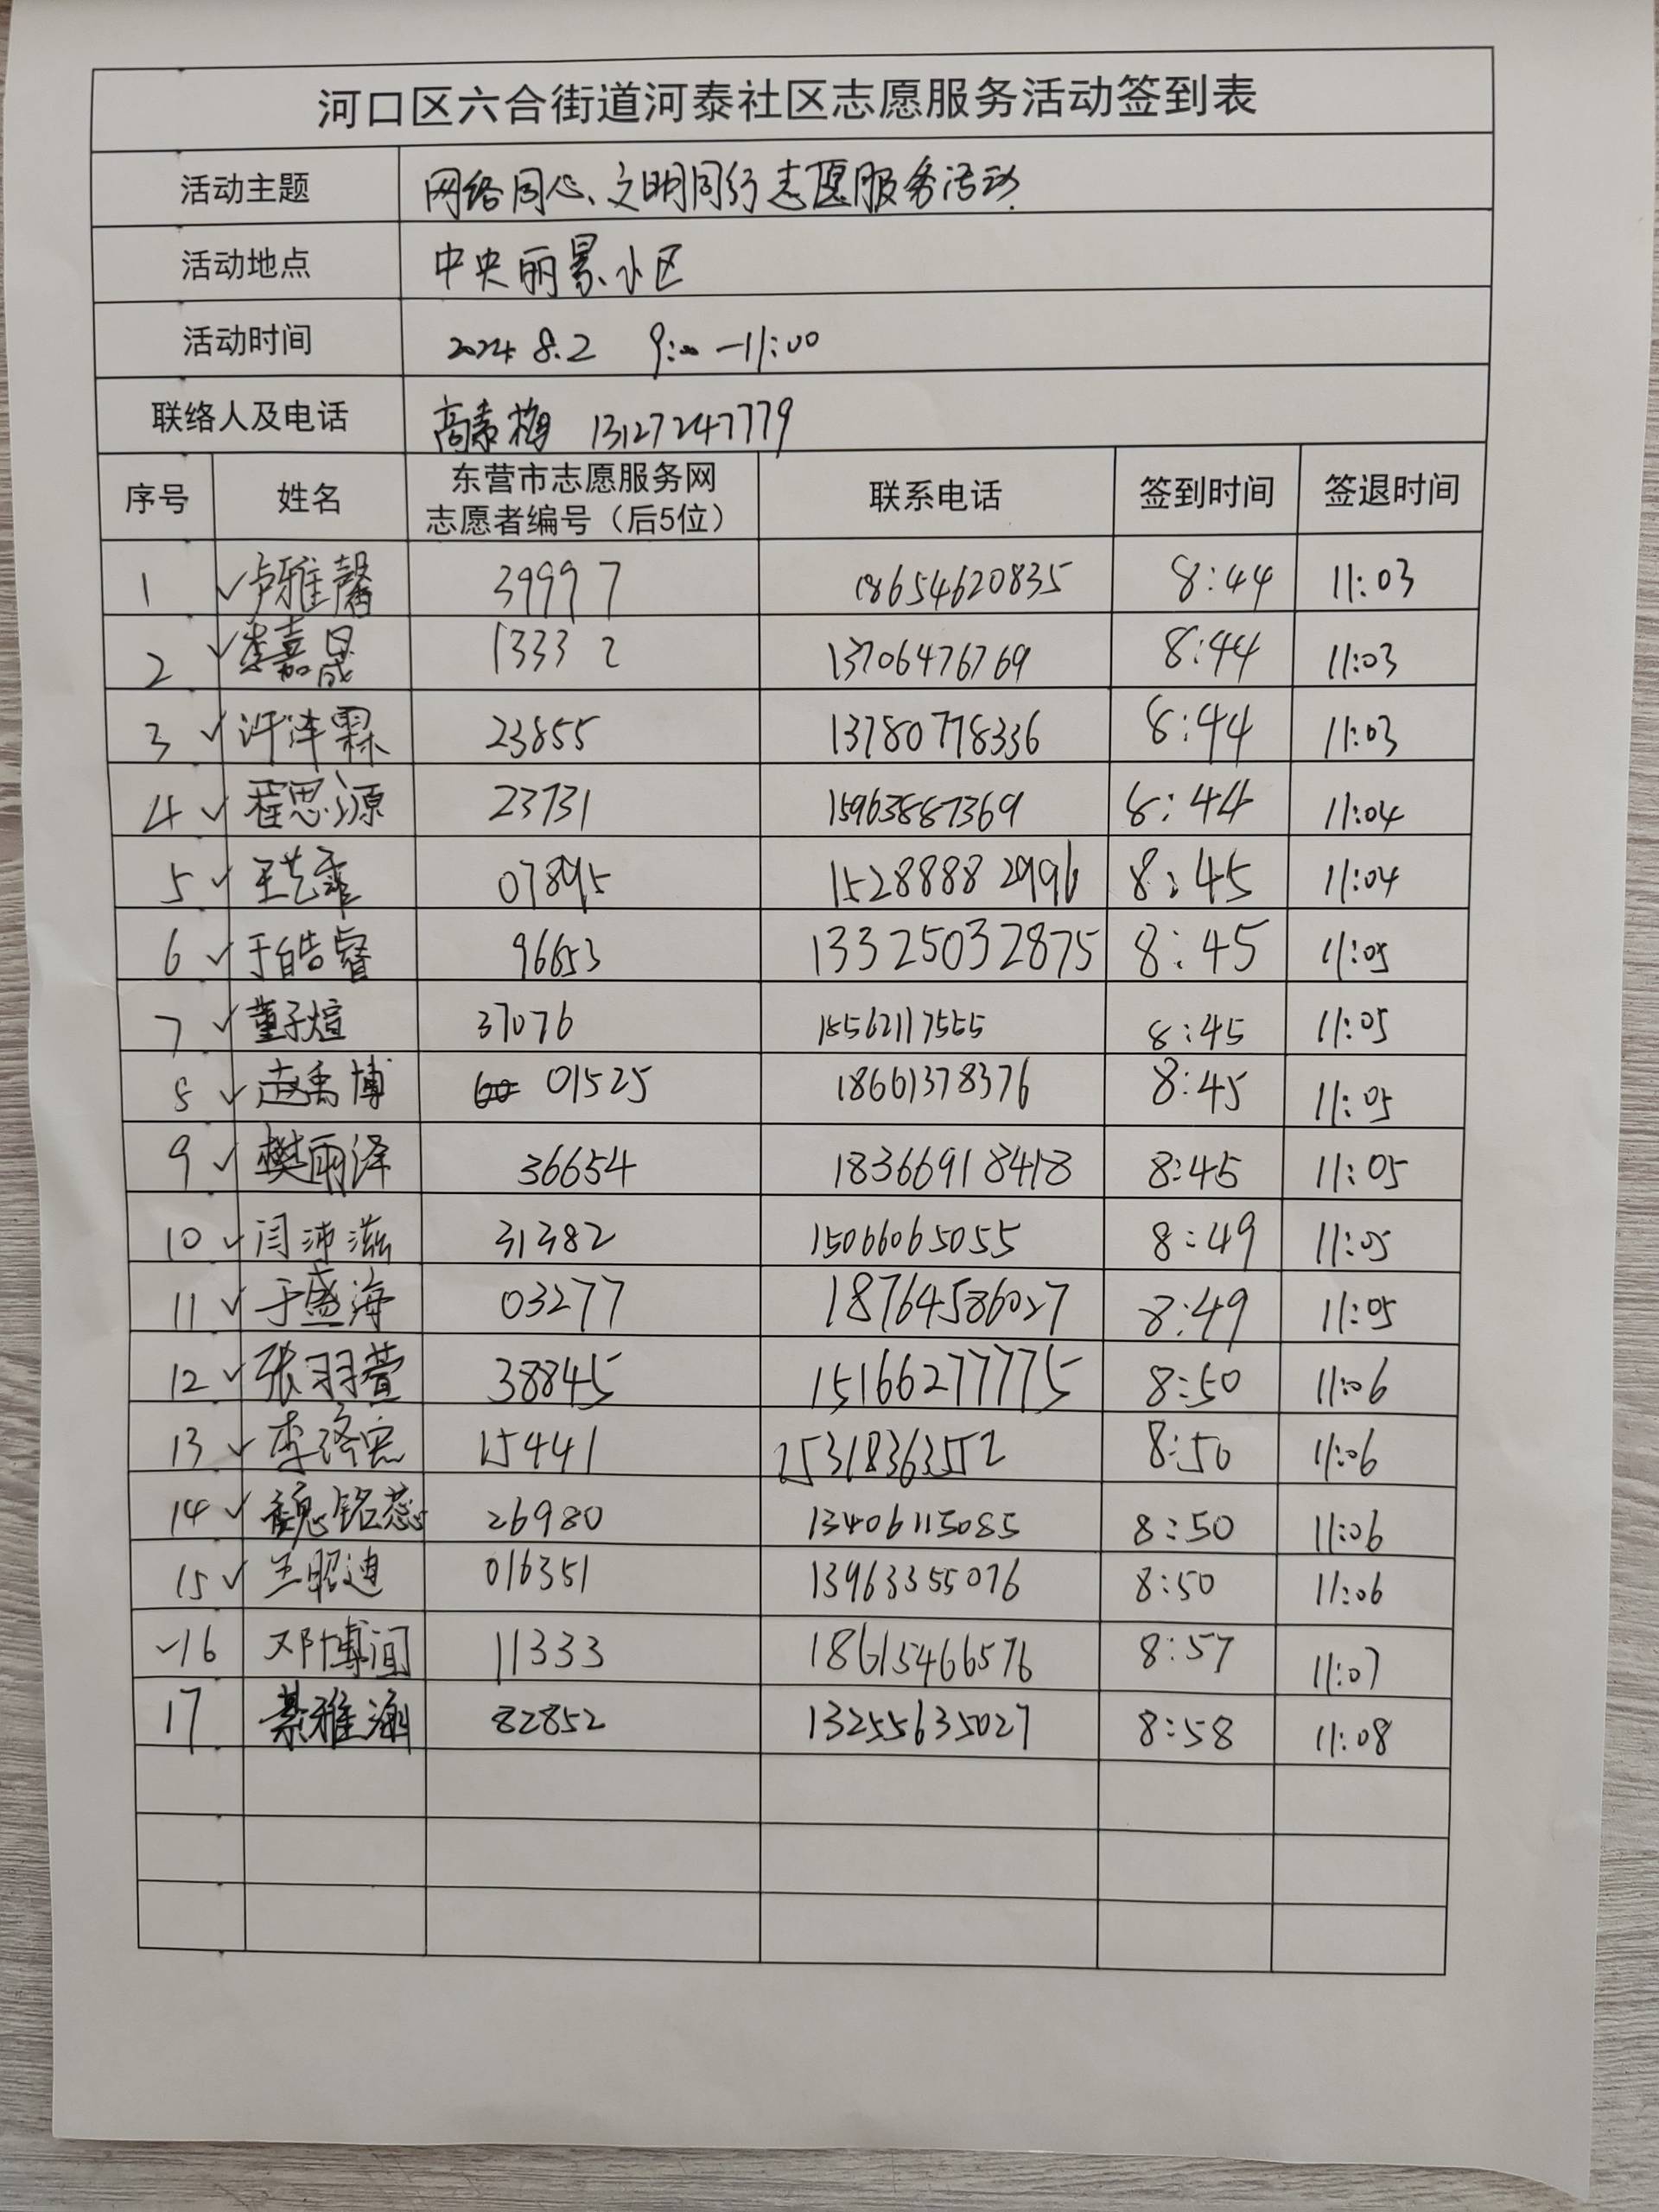 河口区六合街道河泰社区志愿服务活动签到表
活动主题 网络同心、文明同行志愿服务活动
活动地点 中央丽景小区
活动时间 2024.8.2 9:00—11:00
联络人及电话 高素梅 13127247779
序号 姓名 东营市志愿服务网志愿者编号（后5位） 联系电话 签到时间 签退时间
1 卢雅馨 39997 18654620835 8:44 11:03
2 李嘉晟 13332 13706476769 8:44 11:03
3 许沣霖 23855 13780778336 8:44 11:03
4 翟思源 23731 15963887369 8:44 11:04
5 王艺霏 07895 15288882996 8:45 11:04
6 于皓睿 96653 13325032875 8:45 11:05
7 董子煊 37076 18562117555 8:45 11:05
8 赵禹博 01525 18661378376 8:45 11:05
9 樊雨泽 36654 18366918418 8:45 11:05
10 闫沛滋 31382 15066065055 8:49 11:05
11 于盛海 03277 18764586027 8:49 11:05
12 张羽萱 38845 15166277775 8:50 11:06
13 李泽宸 15441 15318363552 8:50 11:06
14 魏铭蕊 26980 13406115085 8:50 11:06
15 兰昭迪 016351 13963355076 8:50 11:06
16 邓博闻 11333 18615466576 8:57 11:07
17 綦雅涵 82852 13255635027 8:58 11:08